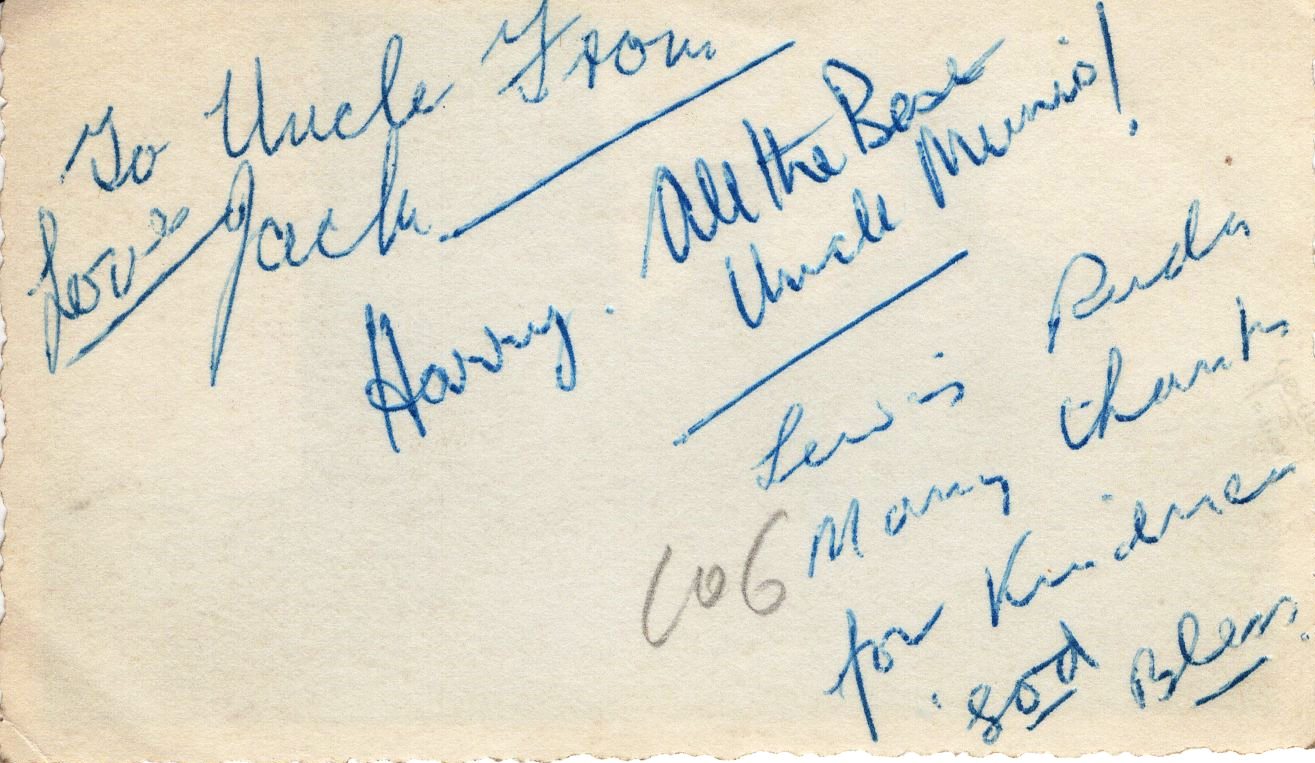 To Uncle From
Love Jack
Harry.
All the Best
Uncle
Lewis
Many thanks
for Kindness
God Bless.
106